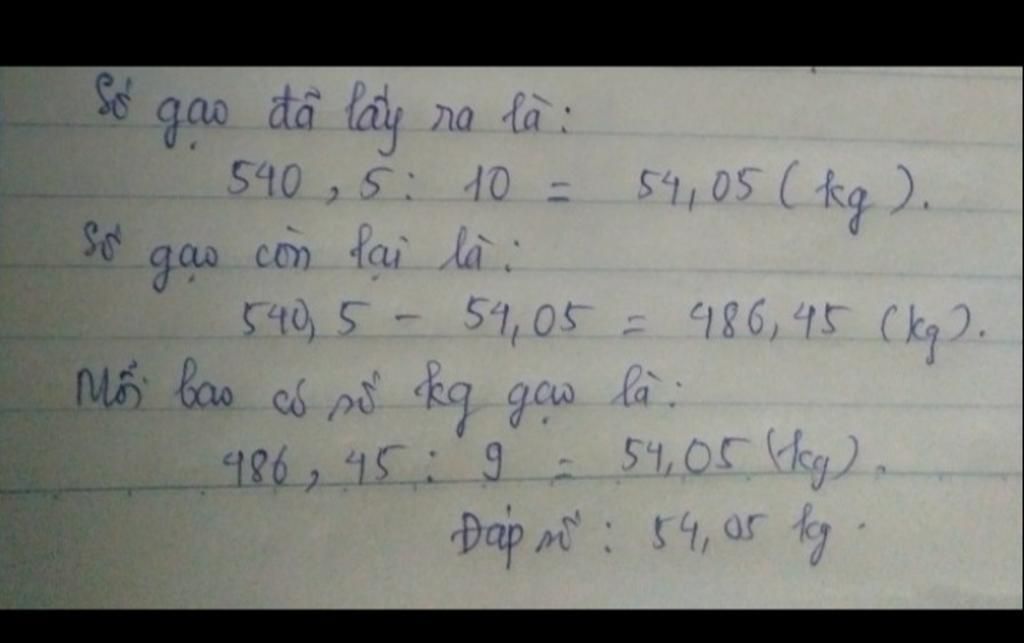 Số gạo đã lấy ra là:
540,5 : 10 = 54,05 (kg).
Số gạo còn lại là:
540,5 - 54,05 = 486,45 (kg).
Mỗi bao có số kg gạo là:
486,45 : 9 = 54,05 (kg).
Đáp số: 54,05 kg.